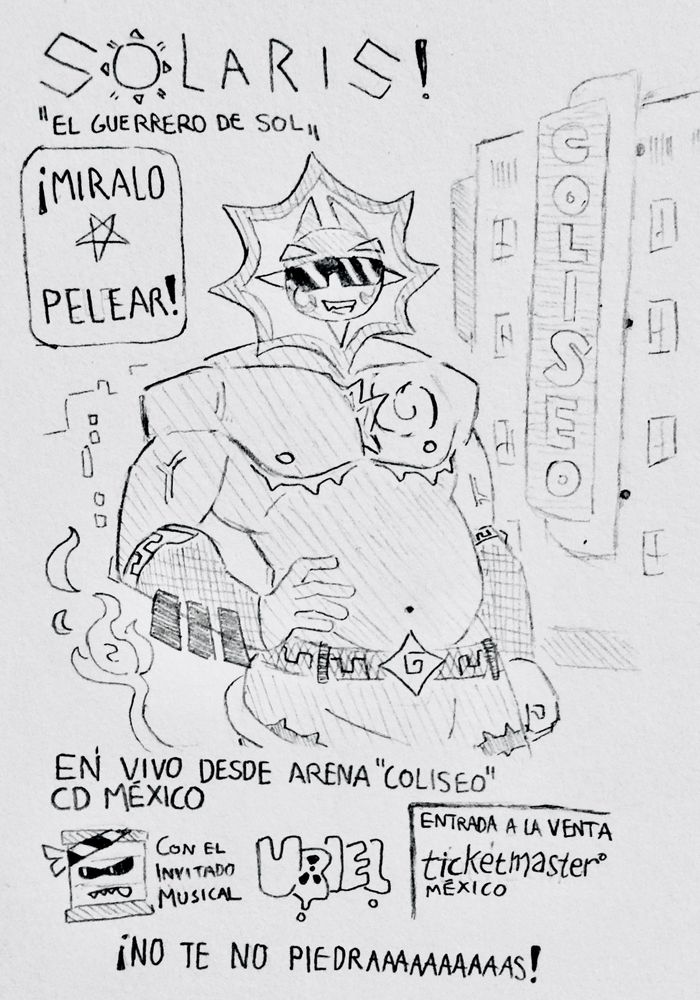 SOLARIS!
"EL GUERRERO DE SOL"
¡MIRALO
PELEAR!
COLISEO
EN VIVO DESDE ARENA "COLISEO"
CD MÉXICO
CON EL
INVITADO
MUSICAL
URIEL
ENTRADA A LA VENTA
ticketmaster
MÉXICO
¡NO TE NO PIEDRAAAAAAAAAAS!